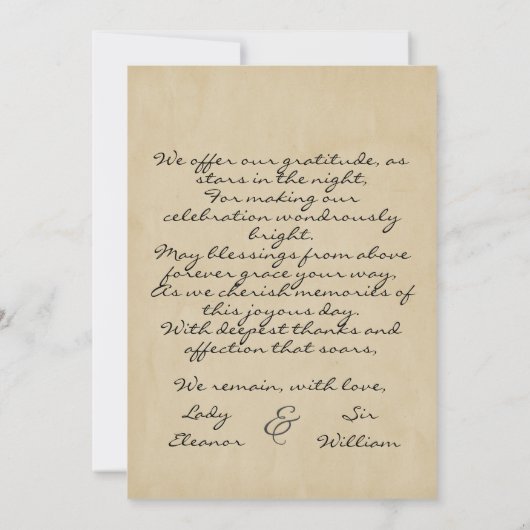 We offer our gratitude, as
stars in the night,
For making our
celebration wondrously
bright.
May blessings from above
forever grace your way,
As we cherish memories of
this joyous day.
With deepest thanks and
affection that soars,
We remain, with love,
Lady & Sir
Eleanor William